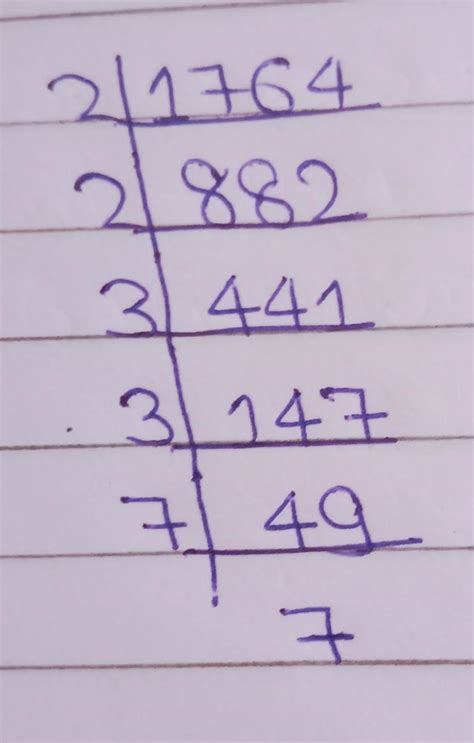 2 1764
2 882
3 441
3 147
7 49
7